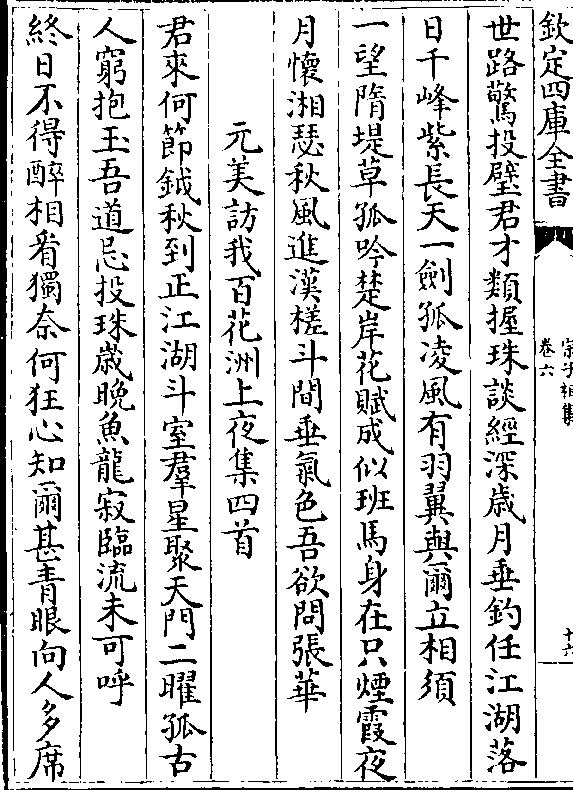 欽定四庫全書
宗子相集
卷六
十六
世路驚投璧君才類握珠談經深歳月垂釣任江湖落
日千峰紫長天一劍孤凌風有羽翼與爾立相須
一望隋堤草孤吟楚岸花賦成似班馬身在只煙霞夜
月懷湘瑟秋風進漢槎斗間垂氣色吾欲問張華
元美訪我百花洲上夜集四首
君來何節鉞秋到正江湖斗室羣星聚天門二曜孤古
人窮抱玉吾道忌投珠歳晚魚龍寂臨流未可呼
終日不得醉相看獨奈何狂心知爾甚青眼向人多席